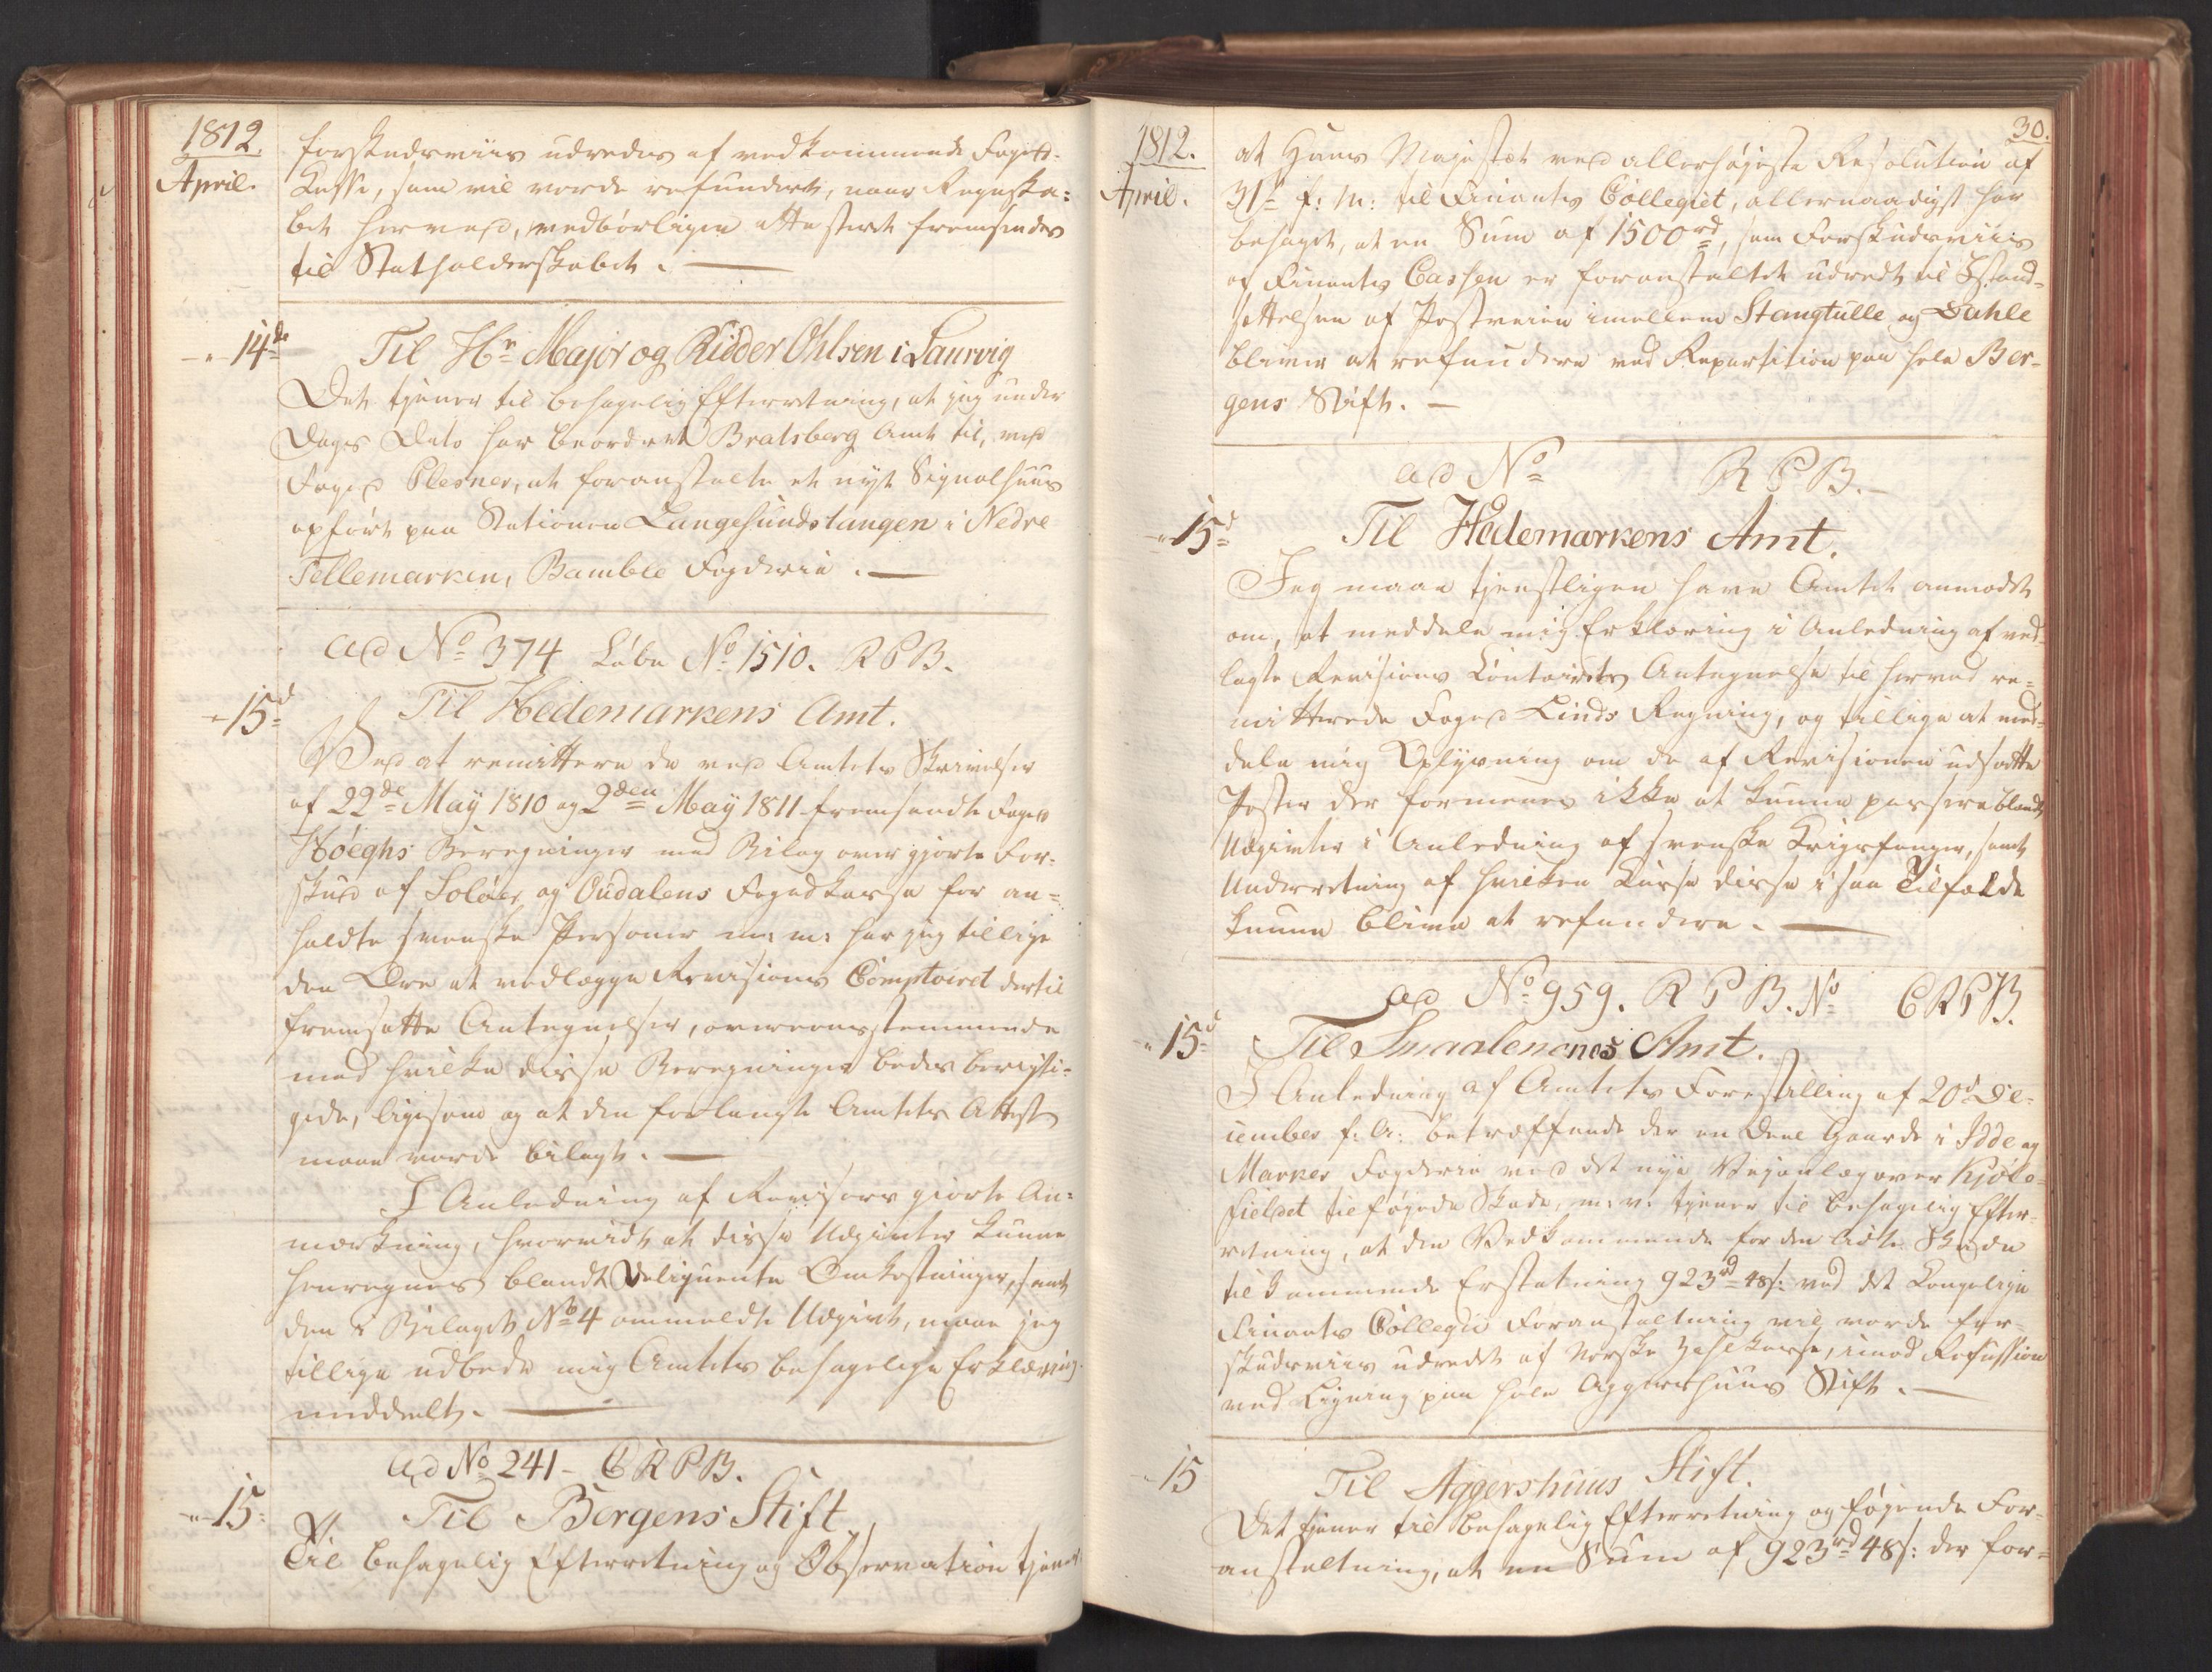 1812.
April.
forskudsviis udredes af vedkommende Foged-
Kasse, som vil vorde refunderet, naar Regnska-
bet herved, vedbørligen attesteret fremsendes
til Statholderskabet. —
14de
Til Hr Major og Ridder Ohlsen i Laurvig
Det tjener til behagelig Efterretning, at jeg under
Dags Dato har beordret Bratsberg Amt til, ved
Foged Plesner, at foranstalte et nyt Signalhuus
opført paa Stationen Langesundstangen i Nedre
Tellemarken, Bamble Fogderie. —
ad No 374 Løbe No 1510. R P B.
15d
Til Hedemarkens Amt.
Ved at remittere de ved Amtets Skrivelser
af 22de May 1810 og 2den May 1811 fremsendte Foged
Høeghs Beregninger med Bilag over gjorte For-
skud af Soløer og Oudalens Fogedkasse for an-
holdte svenske Personer m: m: har jeg tillige
den Ære at vedlægge Revisions Comptoiret dertil
fremsatte Antegnelser, overeensstemmende
med hvilke disse Beregninger bedes berigti-
gede, ligesom og at den forlangte Amtets Attest
maae vorde bilagt. —
I Anledning af Revisors giorte An-
mærkning, hvorvidt at disse Udgivter kunne
henregnes blandt Deliqventa Omkostninger, samt
den i Bilaget No 4 ommeldte Udgivt, maae jeg
tillige udbede mig Amtets behagelige Erklæring
meddeelt. —
ad No 241 - C R P B.
15.
Til Bergens Stift
Til behagelig Efterretning og Observation tjener
30.
1812.
April.
at Hans Majestæt ved allerhøjeste Resolution af
31d f: M: til Finants Collegiet, allernaadigst har
behaget, at en Sum af 1500 rd, som Forskudsviis
af Finants Cassen er foranstaltet udredt til Istand-
sættelsen af Postveien imellem Stangtulle og Dahle
bliver at refundere ved Repartition paa hele Ber-
gens Stift. —
ad No R P B.
15d
Til Hedemarkens Amt.
Jeg maae tjenstligen have Amtet anmodet
om, at meddele mig Erklæring i Anledning af ved-
lagte Revisions Contoirets Antegnelse til herved re-
mitterede Foged Linds Regning, og tillige at med-
dele mig Oplysning om de af Revisionen udsatte
Poster der formenes ikke at kunne passere blandt
Udgivter i Anledning af svenske Krigsfanger, samt
Underretning af hvilken Kasse disse i saa Tilfælde
kunne blive at refundere. —
ad No 959. R P B. No C R P B.
15d
Til Smaalenenes Amt.
I Anledning af Amtets Forestilling af 20d De-
cember f: A: betræffende der en Deel Gaarde i Idde og
Marker Fogderie ved det nye Vejanlæg over Kjøl-
fieldet tilføyede Skade, m: v: tjener til behagelig Efter-
retning, at den Vedkommende for den lidte Skade
tilkommende Erstatning 923 rd 48 s: ved det Kongelige
Finants Collegii Foranstaltning vil vorde for-
skudsviis udredet af Norske Zahlkasse, imod Refussion
ved Ligning paa hele Aggershuus Stift. —
15
Til Aggershuus Stift.
Det tjener til behagelig Efterretning og føyende For-
anstaltning, at en Sum af 923 rd 48 s: der for-